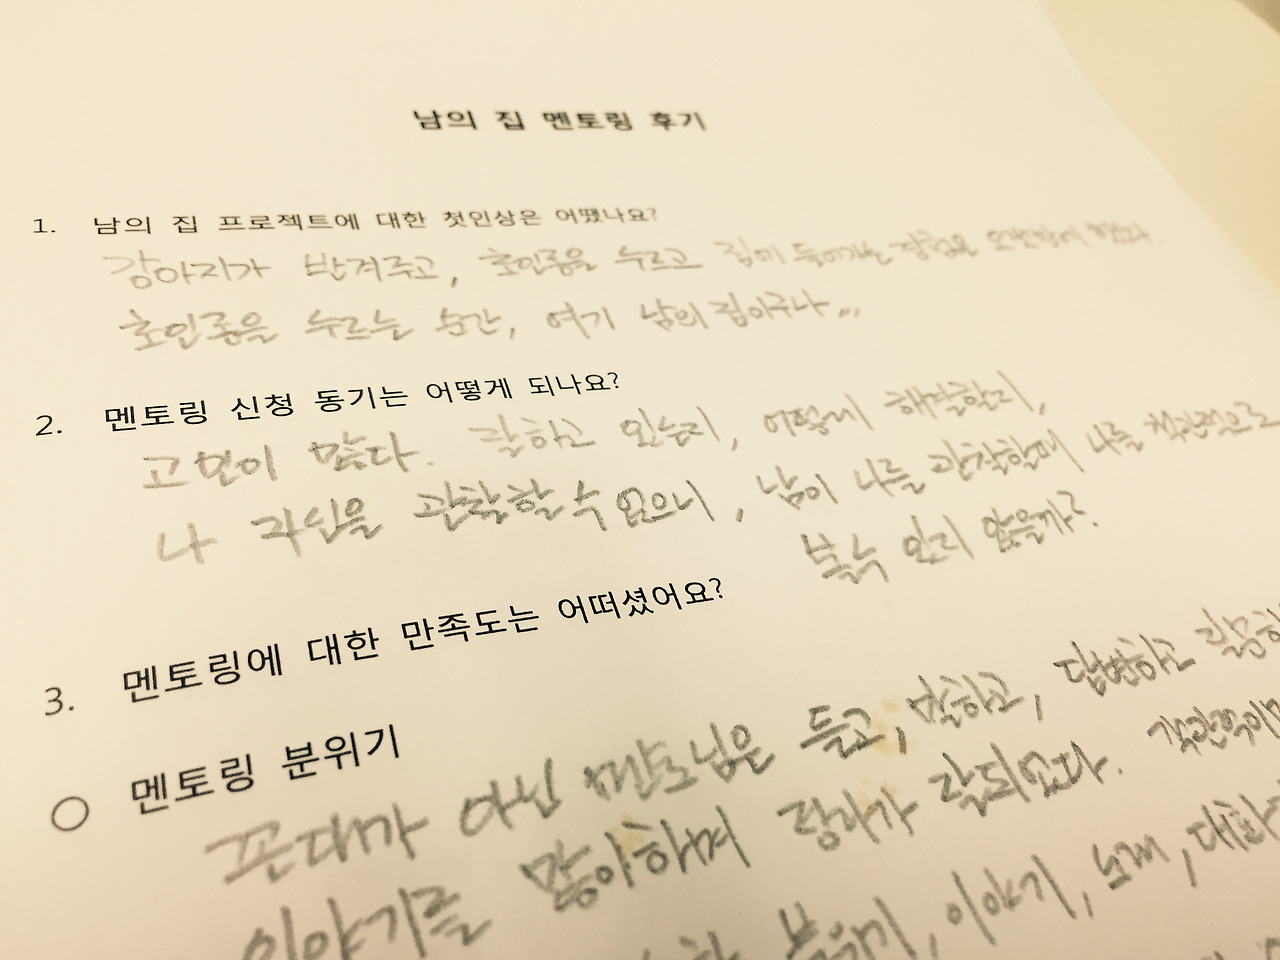 남의 집 멘토링 후기
1. 남의 집 프로젝트에 대한 첫인상은 어땠나요?
강아지가 반겨주고, 초인종을 누르고 집에 들어가는 경험은 오랜만에 했다.
초인종을 누르는 순간, 여기 남의 집이구나...
2. 멘토링 신청 동기는 어떻게 되나요?
고민이 많다. 잘하고 있는지, 어떻게 해결할지,
나 자신을 관찰할 수 없으니, 남이 나를 관찰할때 나를 객관적으로
볼 수 있지 않을까?
3. 멘토링에 대한 만족도는 어떠셨어요?
○ 멘토링 분위기
꼰대가 아닌 멘토님은 듣고, 말하고, 답변하고 질문하
이야기를 많이하며 정리가 잘되었다. 객관적이
분위기, 이야기, 노래, 대화